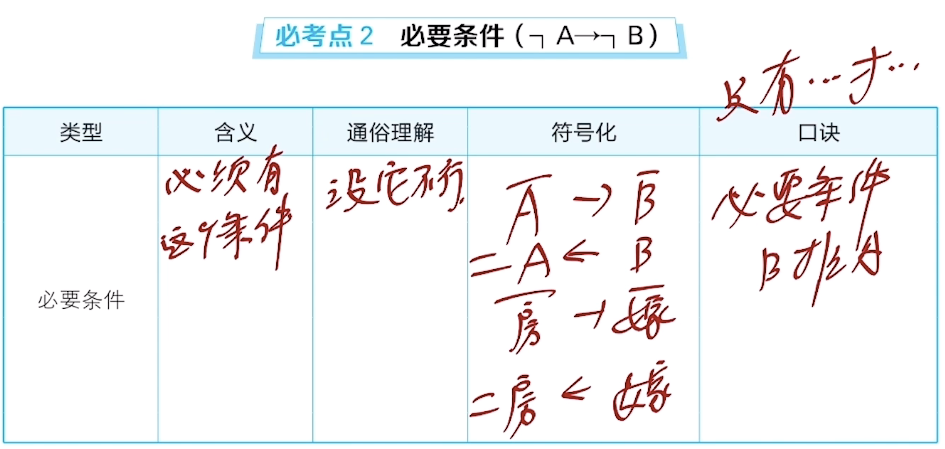 必考点 2 必要条件（¬ A→¬ B）
只有…才…
类型 含义 通俗理解 符号化 口诀
必要条件
必须有
这个条件
没它不行
A̅ → B̅
= A ← B
房̅ → 嫁̅
= 房 ← 嫁
必要条件
B才推A